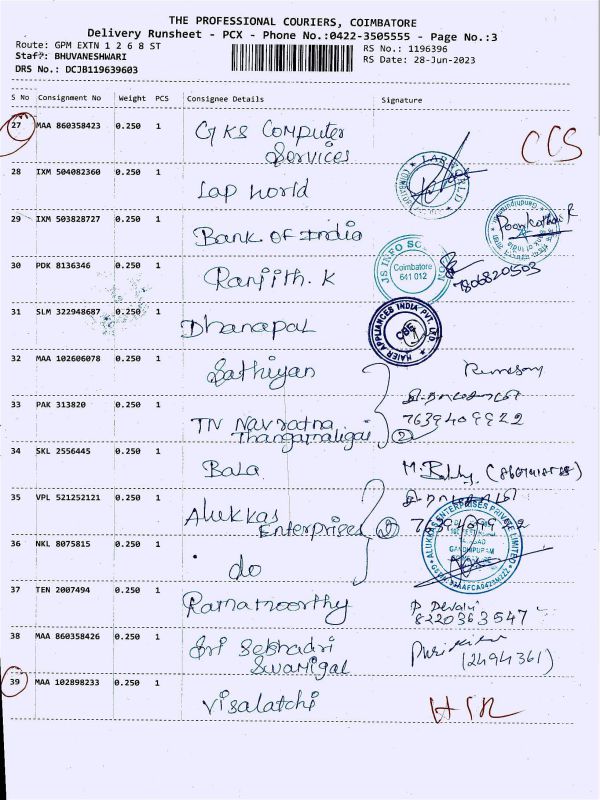 THE PROFESSIONAL COURIERS, COIMBATORE
Delivery Runsheet - PCX - Phone No.:0422-3505555 - Page No.:3
Route: GPM EXTN 1 2 6 8 ST RS No.: 1196396
Staff: BHUVANESHWARI RS Date: 28-Jun-2023
DRS No.: DCJB119639603
S No Consignment No Weight PCS Consignee Details Signature
27 MAA 860358423 0.250 1 GKS Computer Services CCS
28 IXM 504082360 0.250 1 Lap World
29 IXM 503828727 0.250 1 Bank of India
30 PDK 8136346 0.250 1 Ranjith. K
JS INFO
Coimbatore
641 012
7806820503
31 SLM 322948687 0.250 1 Dhanapal
HAIER APPLIANCES INDIA PVT. LTD.
CBE
32 MAA 102606078 0.250 1 Sathiyan
33 PAK 313820 0.250 1 TN Navratna
Thangamaligai 2 7639409922
34 SKL 2556445 0.250 1 Bala
35 VPL 521252121 0.250 1 Alukkas
Enterprises 2
ALUKKAS ENTERPRISES PRIVATE LIMITED
GANDHIPURAM
36 NKL 8075815 0.250 1 do
37 TEN 2007494 0.250 1 Ramamoorthy
8220363547
38 MAA 860358426 0.250 1 Sri Seshadri
Swamigal (2494361)
39 MAA 102898233 0.250 1 Visalatchi